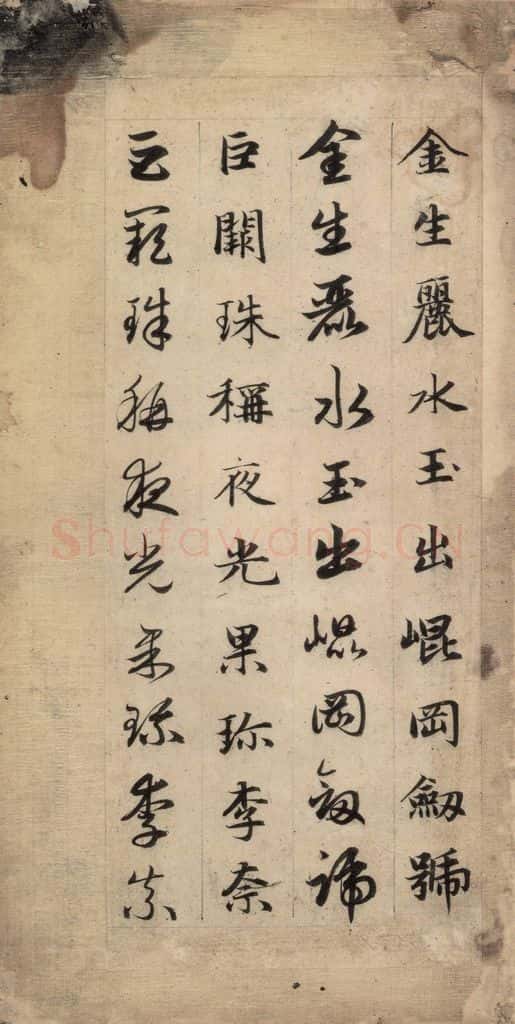 金生麗水玉出崐岡劒號
金生麗水玉出崐岡劒號
巨闕珠稱夜光果珎李柰
巨闕珠稱夜光果珎李柰
Shufawang.CN